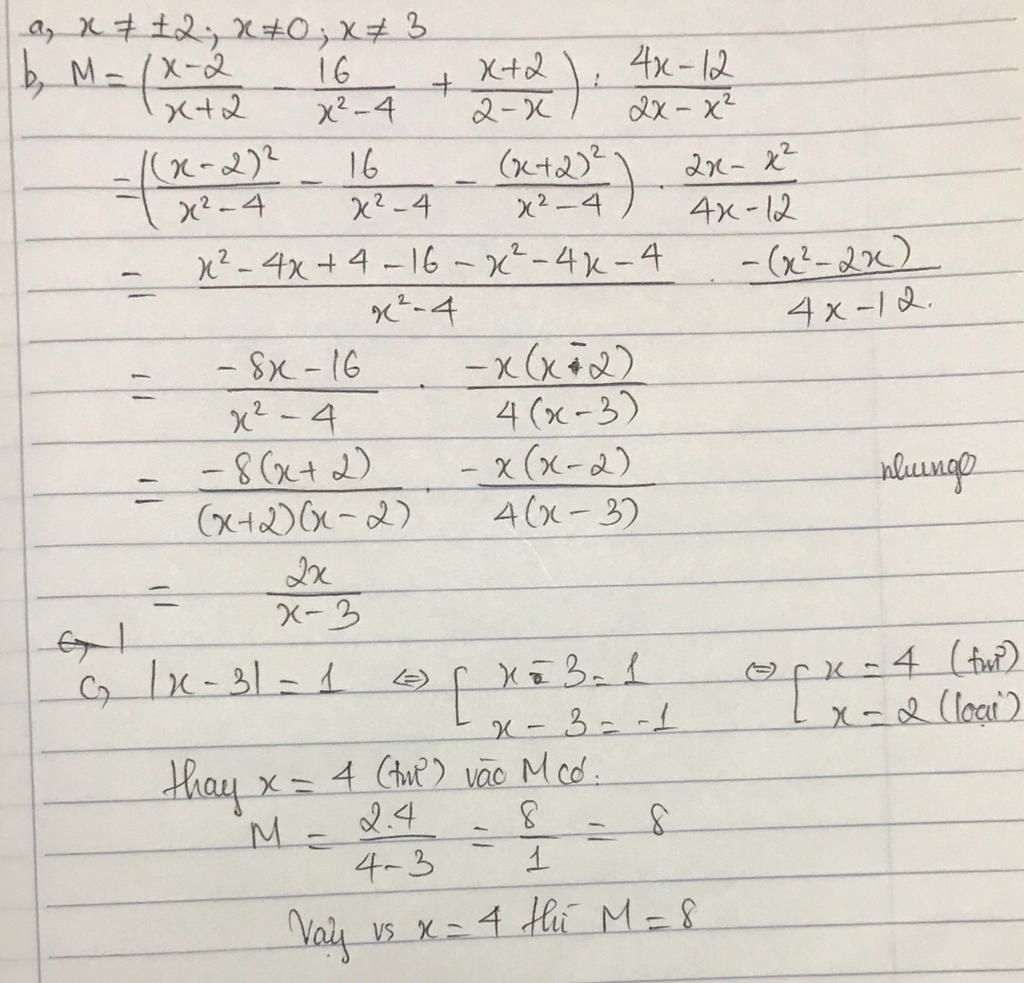 a, x ≠ ±2; x ≠ 0; x ≠ 3
b, M = ( (x-2)/(x+2) - 16/(x²-4) + (x+2)/(2-x) ) : (4x-12)/(2x-x²)
= ( (x-2)²/(x²-4) - 16/(x²-4) - (x+2)²/(x²-4) ) . (2x-x²)/(4x-12)
= (x²-4x+4-16-x²-4x-4)/(x²-4) . -(x²-2x)/(4x-12).
= (-8x-16)/(x²-4) . -x(x-2)/4(x-3)
= -8(x+2)/(x+2)(x-2) . -x(x-2)/4(x-3)
nhungo
= 2x/(x-3)
c, |x-3| = 1 ⇔ [ x-3=1 ; x-3=-1 ⇔ [ x=4 (tm) ; x=2 (loại)
thay x = 4 (tm) vào M có:
M = 2.4/(4-3) = 8/1 = 8
Vậy vs x = 4 thì M = 8